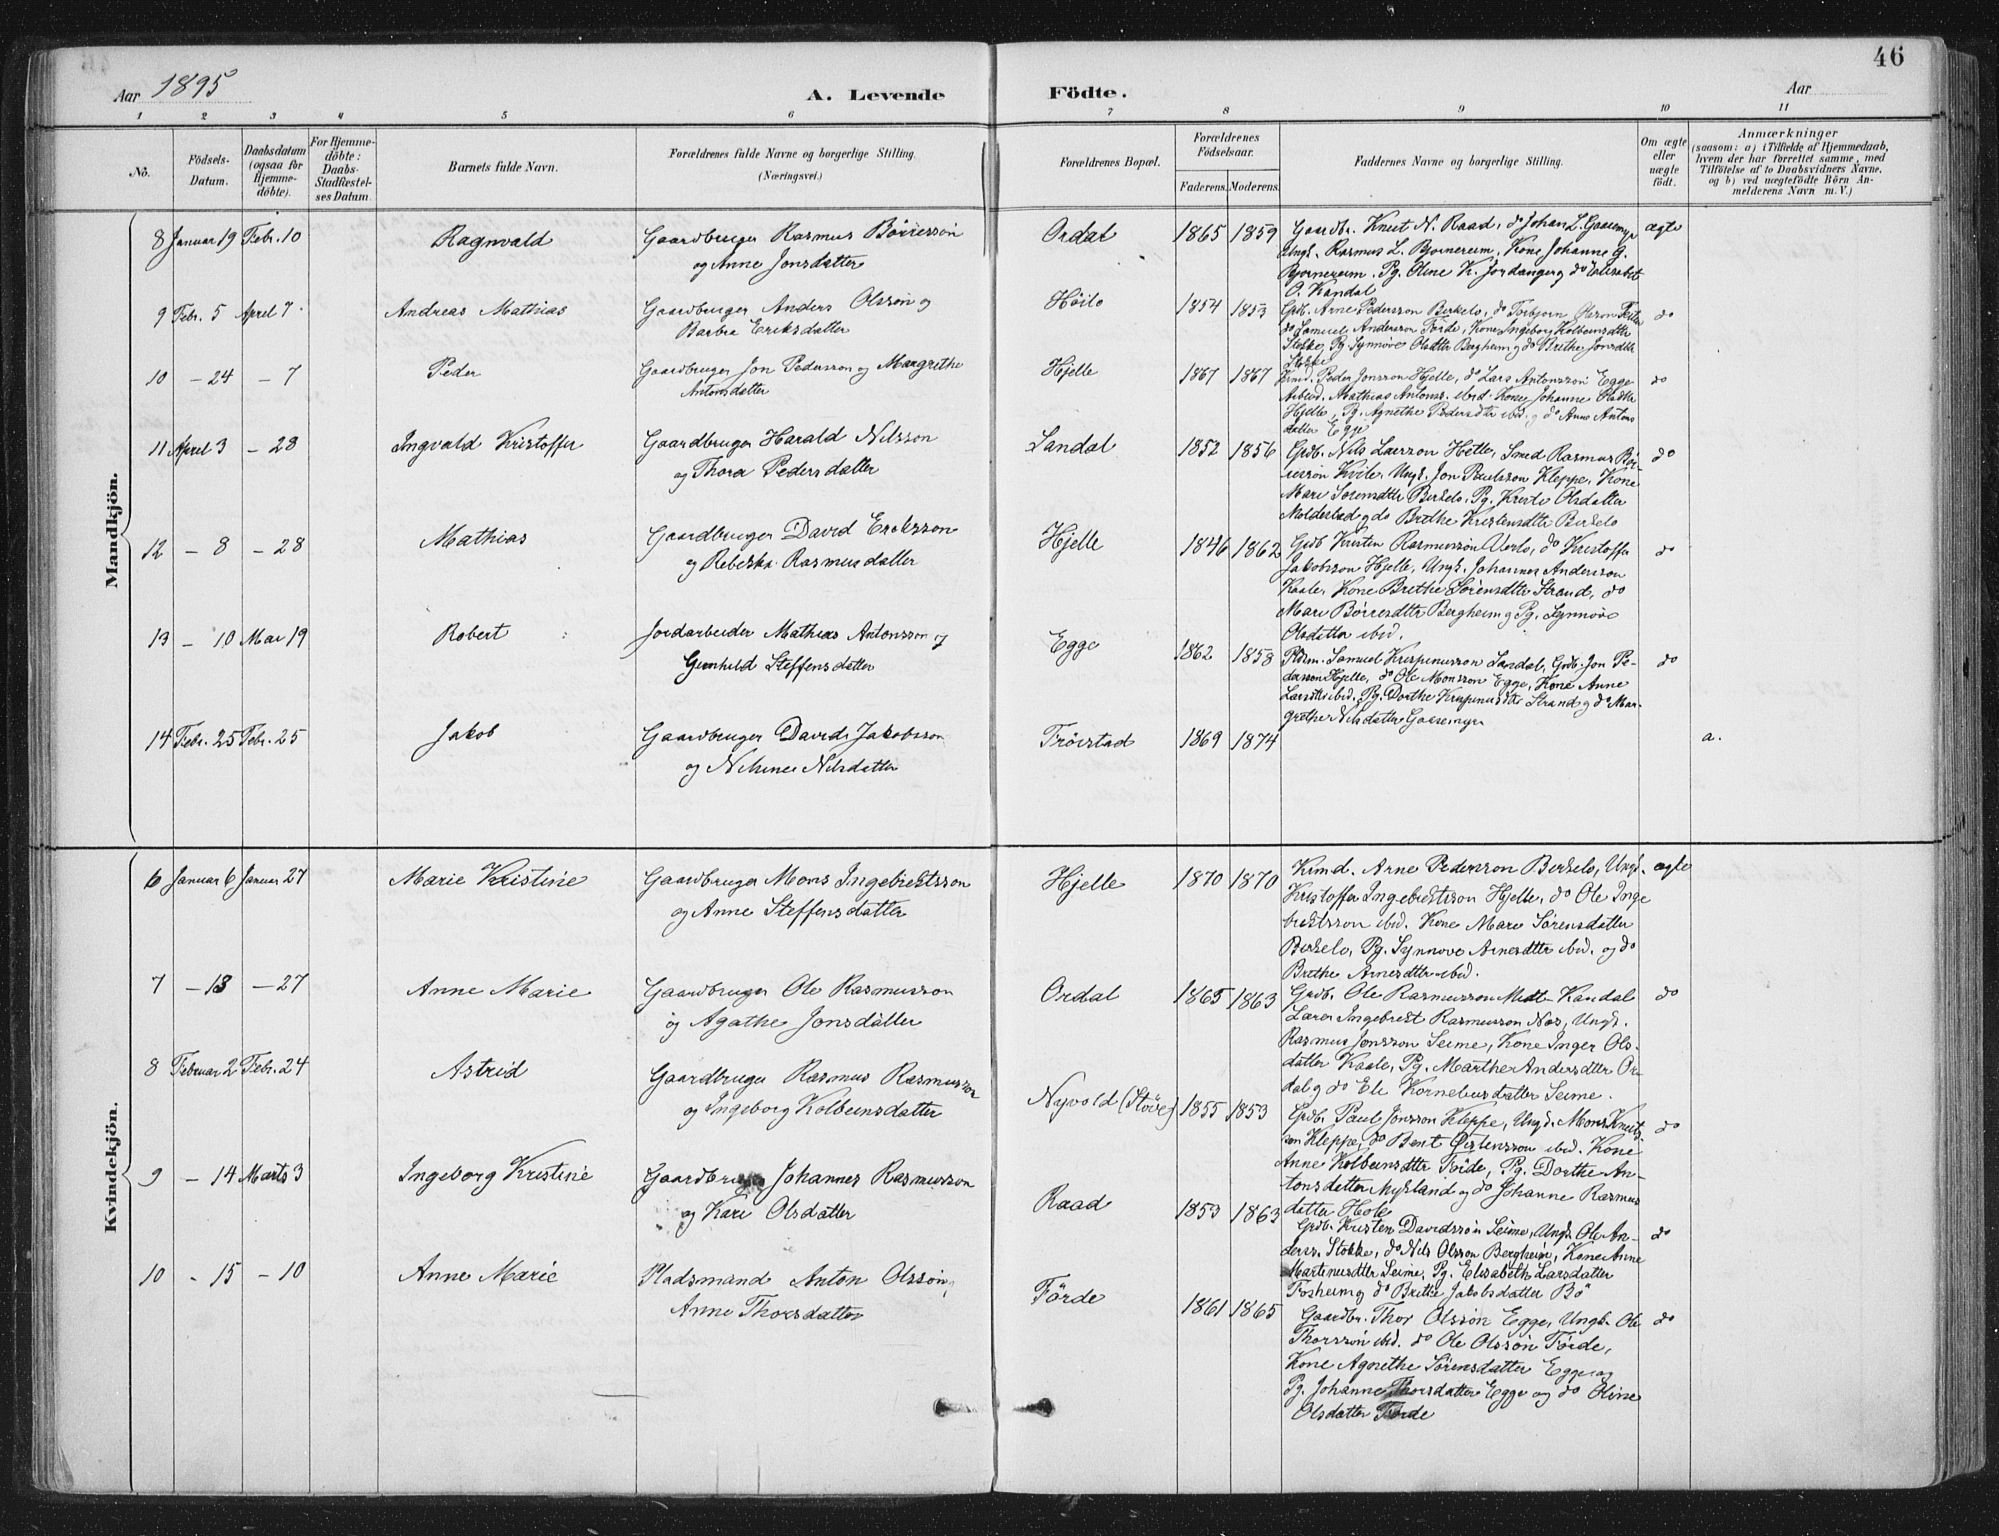 46
Aar 1895
A. Levende Födte.
Aar
1 2 3 4 5 6 7 8 9 10 11
No.
Födsels-Datum.
Daabsdatum (ogsaa for Hjemmedöbte).
For Hjemmedöbte: Daabs-Stadfestelses Datum.
Barnets fulde Navn.
Forældrenes fulde Navne og borgerlige Stilling. (Næringsvei.)
Forældrenes Bopæl.
Forældrenes Födselsaar.
Faderens. Moderens.
Faddernes Navne og borgerlige Stilling.
Om ægte eller uægte födt.
Anmærkninger
(saasom: a) i Tilfælde af Hjemmedaab, hvem der har forrettet samme, med Tilföielse af to Daabsvidners Navne, og b) ved uægtefödte Börn Anmelderens Navn m. V.)
Mandkjön.
8 Januar 19 Febr. 10 Ragnvald Gaardbruger Rasmus Börresson
og Anne Jonsdatter
Ordal 1865 1859 Gaardbr. Knut N. Raad, do Johan L. Gaasemyr ægte
Ungk. Rasmus L. Bjornereim, Kone Johanne G.
Bjornereim, Pg. Oline K. Jordanger og do Elisabet
O. Kandal
9 Febr. 5 April 7 Andreas Mathias Gaardbruger Anders Olsson og
Barbra Eriksdatter
Höilo 1854 1853 Grdb. Arne Pedersson Berkelo, do Torbjorn Olsson do
do Samuel Andersson Förde, Kone Ingeborg Kolbeinsdtter
Stokke, Pg Synnöve Olsdatter Bergheim og do Brithe Jonsdtter
Stokke
10 - 24 - 7 Peder Gaardbruger Jon Pedersson og Margrethe
Antonsdatter
Hjelle 1867 1867 Krmd. Peder Jonsson Hjelle, do Lars Antonsson Egge do
Arbeid. Mathias Antons. ibid. Kone Johanne Olsdtter
Hjelle, Pg. Agnethe Pedersdtr ibid. og do Anne Antons
datter Egge
11 April 3 - 28 Ingvald Kristoffer Gaardbruger Harald Nilsson
og Thora Pedersdatter
Sandal 1852 1856 Grdb. Nils Larsson Hetle, Smed Rasmus Bör- do
resson Kvile, Ungk. Jon Paulsson Kleppe, Kone
Mari Sörensdtter Berkelo, Pg. Kristi Olsdatter
Molderstad og do Brithe Kristensdtter Berkelo
12 - 8 - 28 Mathias Gaardbruger David Eriksson
og Rebekka Rasmusdatter
Hjelle 1846 1862 Grdb Kristen Rasmussön Aerlo, do Kristoffer do
Jakobsson Hjelle, Ungk. Johannes Andersson
Kaale, Kone Brithe Sörensdtter Strand, do
Mari Börresdtter Bergheim og Pg. Synnöve
Olsdatter ibid.
13 - 10 Mai 19 Robert Jordarbeider Mathias Antonsson og
Gunhild Steffensdatter
Egge 1862 1858 Pldsm. Samuel Krispinusson Sandal, Grdb. Jon Pe- do
dersson Hjelle, do Ole Monsson Egge, Kone Anne
Larsdtr ibid. Pg. Dorthe Krispinusdtr Strand og do Mar-
grethe Nilsdatter Gaasemyr
14 Febr. 25 Febr. 25 Jakob Gaardbruger David Jakobsson
og Nilsine Nilsdatter
Tröistad 1869 1874 a.
Kvindekjön.
6 Januar 6 Januar 27 Marie Kristine Gaardbruger Mons Ingebretsson
og Anne Steffensdatter
Hjelle 1870 1870 Krmd. Arne Pedersson Berkelo, Ungk. ægte
Kristoffer Ingebretsson Hjelle, do Ole Inge
bretsson ibid. Kone Mari Sörensdatter
Berkelo, Pg. Synnove Arnesdtter ibid. og do
Brithe Arnesdtter ibid.
7 - 13 - 27 Anne Marie Gaardbruger Ole Rasmusson
og Agathe Jonsdatter
Ordal 1865 1863 Grdb. Ole Rasmusson Midt-Kandal do
Lærer Ingebret Rasmusson Nos, Ungk.
Rasmus Jonsson Seime, Kone Inger Ols-
datter Kaale, Pg. Marthe Andersdtter Or-
dal og do Eli Kornelusdatter Seime.
8 Februar 2 Febr. 24 Astrid Gaardbruger Rasmus Rasmusson
og Ingeborg Kolbeinsdatter
Nyvold (Stöve) 1855 1853 Grdb. Paul Jonsson Kleppe, Ungk. Mons Knuts do
son Kleppe, do Bent Östensson ibid. Kone
Anne Kolbeinsdtter Förde, Pg. Dorthe An-
tonsdatter Mykland og do Johanne Rasmus
datter Hole
9 - 14 Marts 3 Ingeborg Kristine Gaardbruger Johannes Rasmusson
og Kari Olsdatter
Raad 1853 1863 Grdb. Kristen Davidsson Seime, Ungk. Ole An- do
derss. Stokke, do Nils Olsson Bergheim, Kone Anne
Martinusdtter Seime, Pg. Elisabeth Larsdatter
Fosheim og do Brithe Jakobsdatter Bö
10 - 15 - 10 Anne Marie Pladsmand Anton Olsson,
Anne Thorsdatter
Förde 1861 1865 Gaardbr. Thor Olsson Egge, Ungk. Ole do
Thorsson ibid. do Ole Olsson Förde,
Kone Agnethe Sörensdatter Egge og
Pg. Johanne Thorsdatter Egge og do Oline
Olsdatter Förde